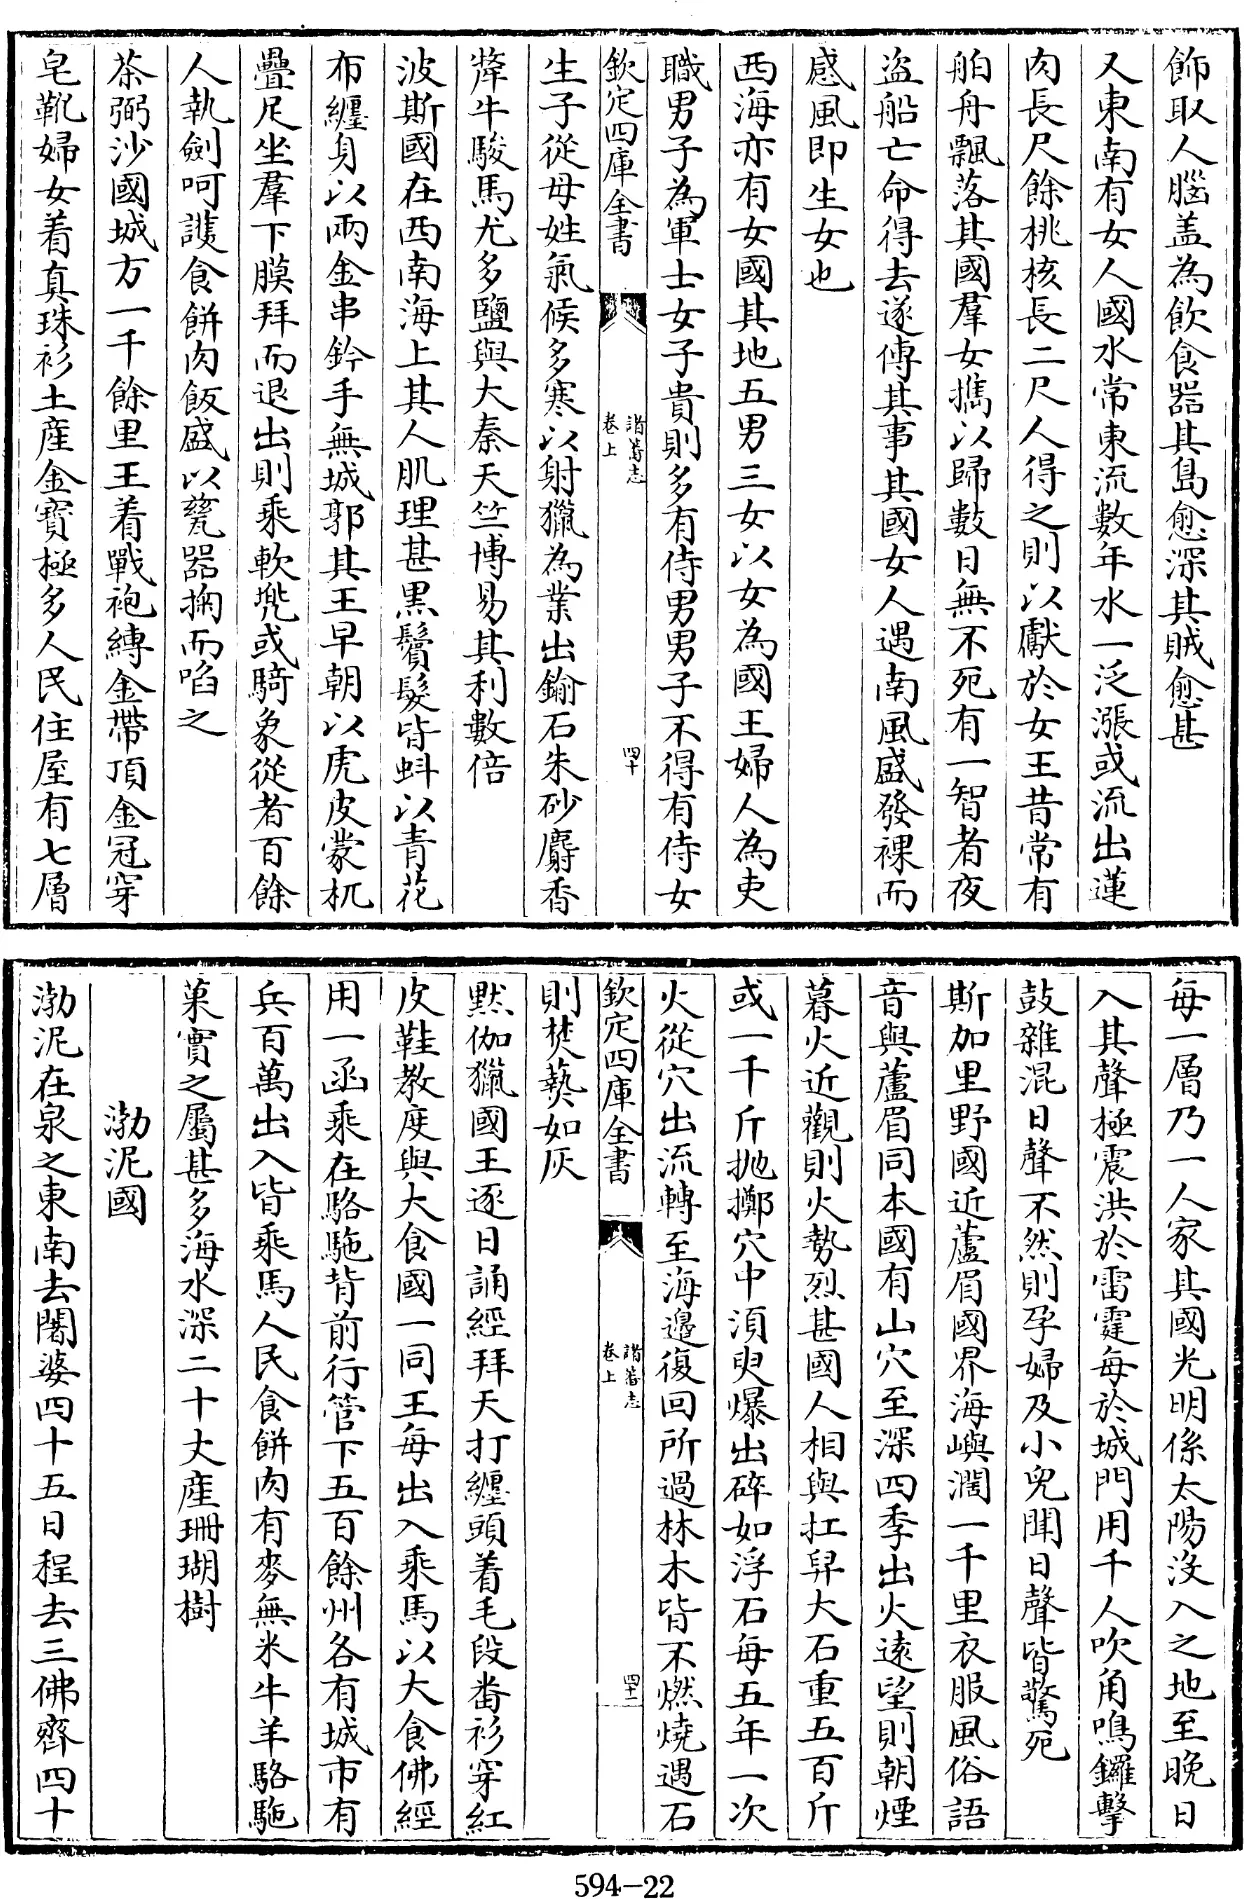 飾取人腦盖為飲食器其島愈深其賊愈甚
又東南有女人國水常東流數年水一泛漲或流出蓮
肉長尺餘桃核長二尺人得之則以獻於女王昔常有
舶舟飄落其國羣女攜以歸數日無不死有一智者夜
盜船亡命得去遂傳其事其國女人遇南風盛發祼而
感風即生女也
西海亦有女國其地五男三女以女為國王婦人為吏
職男子為軍士女子貴則多有侍男男子不得有侍女
欽定四庫全書
諸蕃志
卷上
四十
生子從母姓氣候多寒以射獵為業出鍮石朱砂麝香
犛牛駿馬尤多鹽與大秦天竺博易其利數倍
波斯國在西南海上其人肌理甚黒鬢髮皆蚪以青花
布纏身以兩金串鈐手無城郭其王早朝以虎皮蒙杌
疊足坐羣下膜拜而退出則乘軟兠或騎象從者百餘
人執劍呵護食餅肉飯盛以甆器掬而啗之
茶弼沙國城方一千餘里王着戰袍縛金帶頂金冠穿
皂靴婦女着真珠衫土産金寳極多人民住屋有七層
每一層乃一人家其國光明係太陽没入之地至晚日
入其聲極震洪於雷霆每於城門用千人吹角鳴鑼擊
鼓雜混日聲不然則孕婦及小兒聞日聲皆驚死
斯加里野國近蘆眉國界海嶼濶一千里衣服風俗語
音與蘆眉同本國有山穴至深四季出火逺望則朝煙
暮火近觀則火勢烈甚國人相與扛舁大石重五百斤
或一千斤抛擲穴中湏臾爆出碎如浮石每五年一次
火從穴出流轉至海邉復回所過林木皆不燃燒遇石
欽定四庫全書
諸蕃志
卷上
四十一
則焚爇如灰
黙伽獵國王逐日誦經拜天打纏頭着毛段畨衫穿紅
皮鞋教度與大食國一同王每出入乘馬以大食佛經
用一函乘在駱駞背前行管下五百餘州各有城市有
兵百萬出入皆乘馬人民食餅肉有麥無米牛羊駱駞
菓實之屬甚多海水深二十丈産珊瑚樹
渤泥國
渤泥在泉之東南去闍婆四十五日程去三佛齊四十
594-22